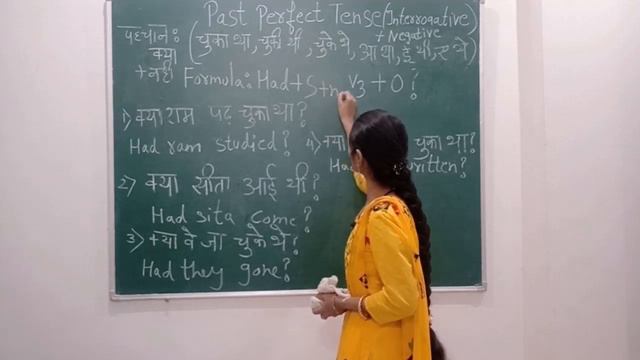 Past Perfect Tense (Interrogative)
+ Negative
पहचान: (चुका था, चुकी थी, चुके थे, आ था, ई थी, ए थे)
क्या
+ नही Formula: Had + S + n V3 + O ?
1) क्या राम पढ़ चुका था?
Had ram studied?
4) क्या चुका था?
Ha written?
2) क्या सीता आई थी?
Had sita come?
3) क्या वे जा चुके थे?
Had they gone?